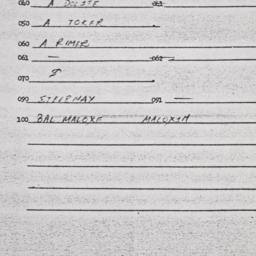 040 A DOLITE 063
050 A TOKER
060 A RIMER
061 — 062 —
070
090 STEERMAY 091 —
100 BAL MALOXE MALOXIM